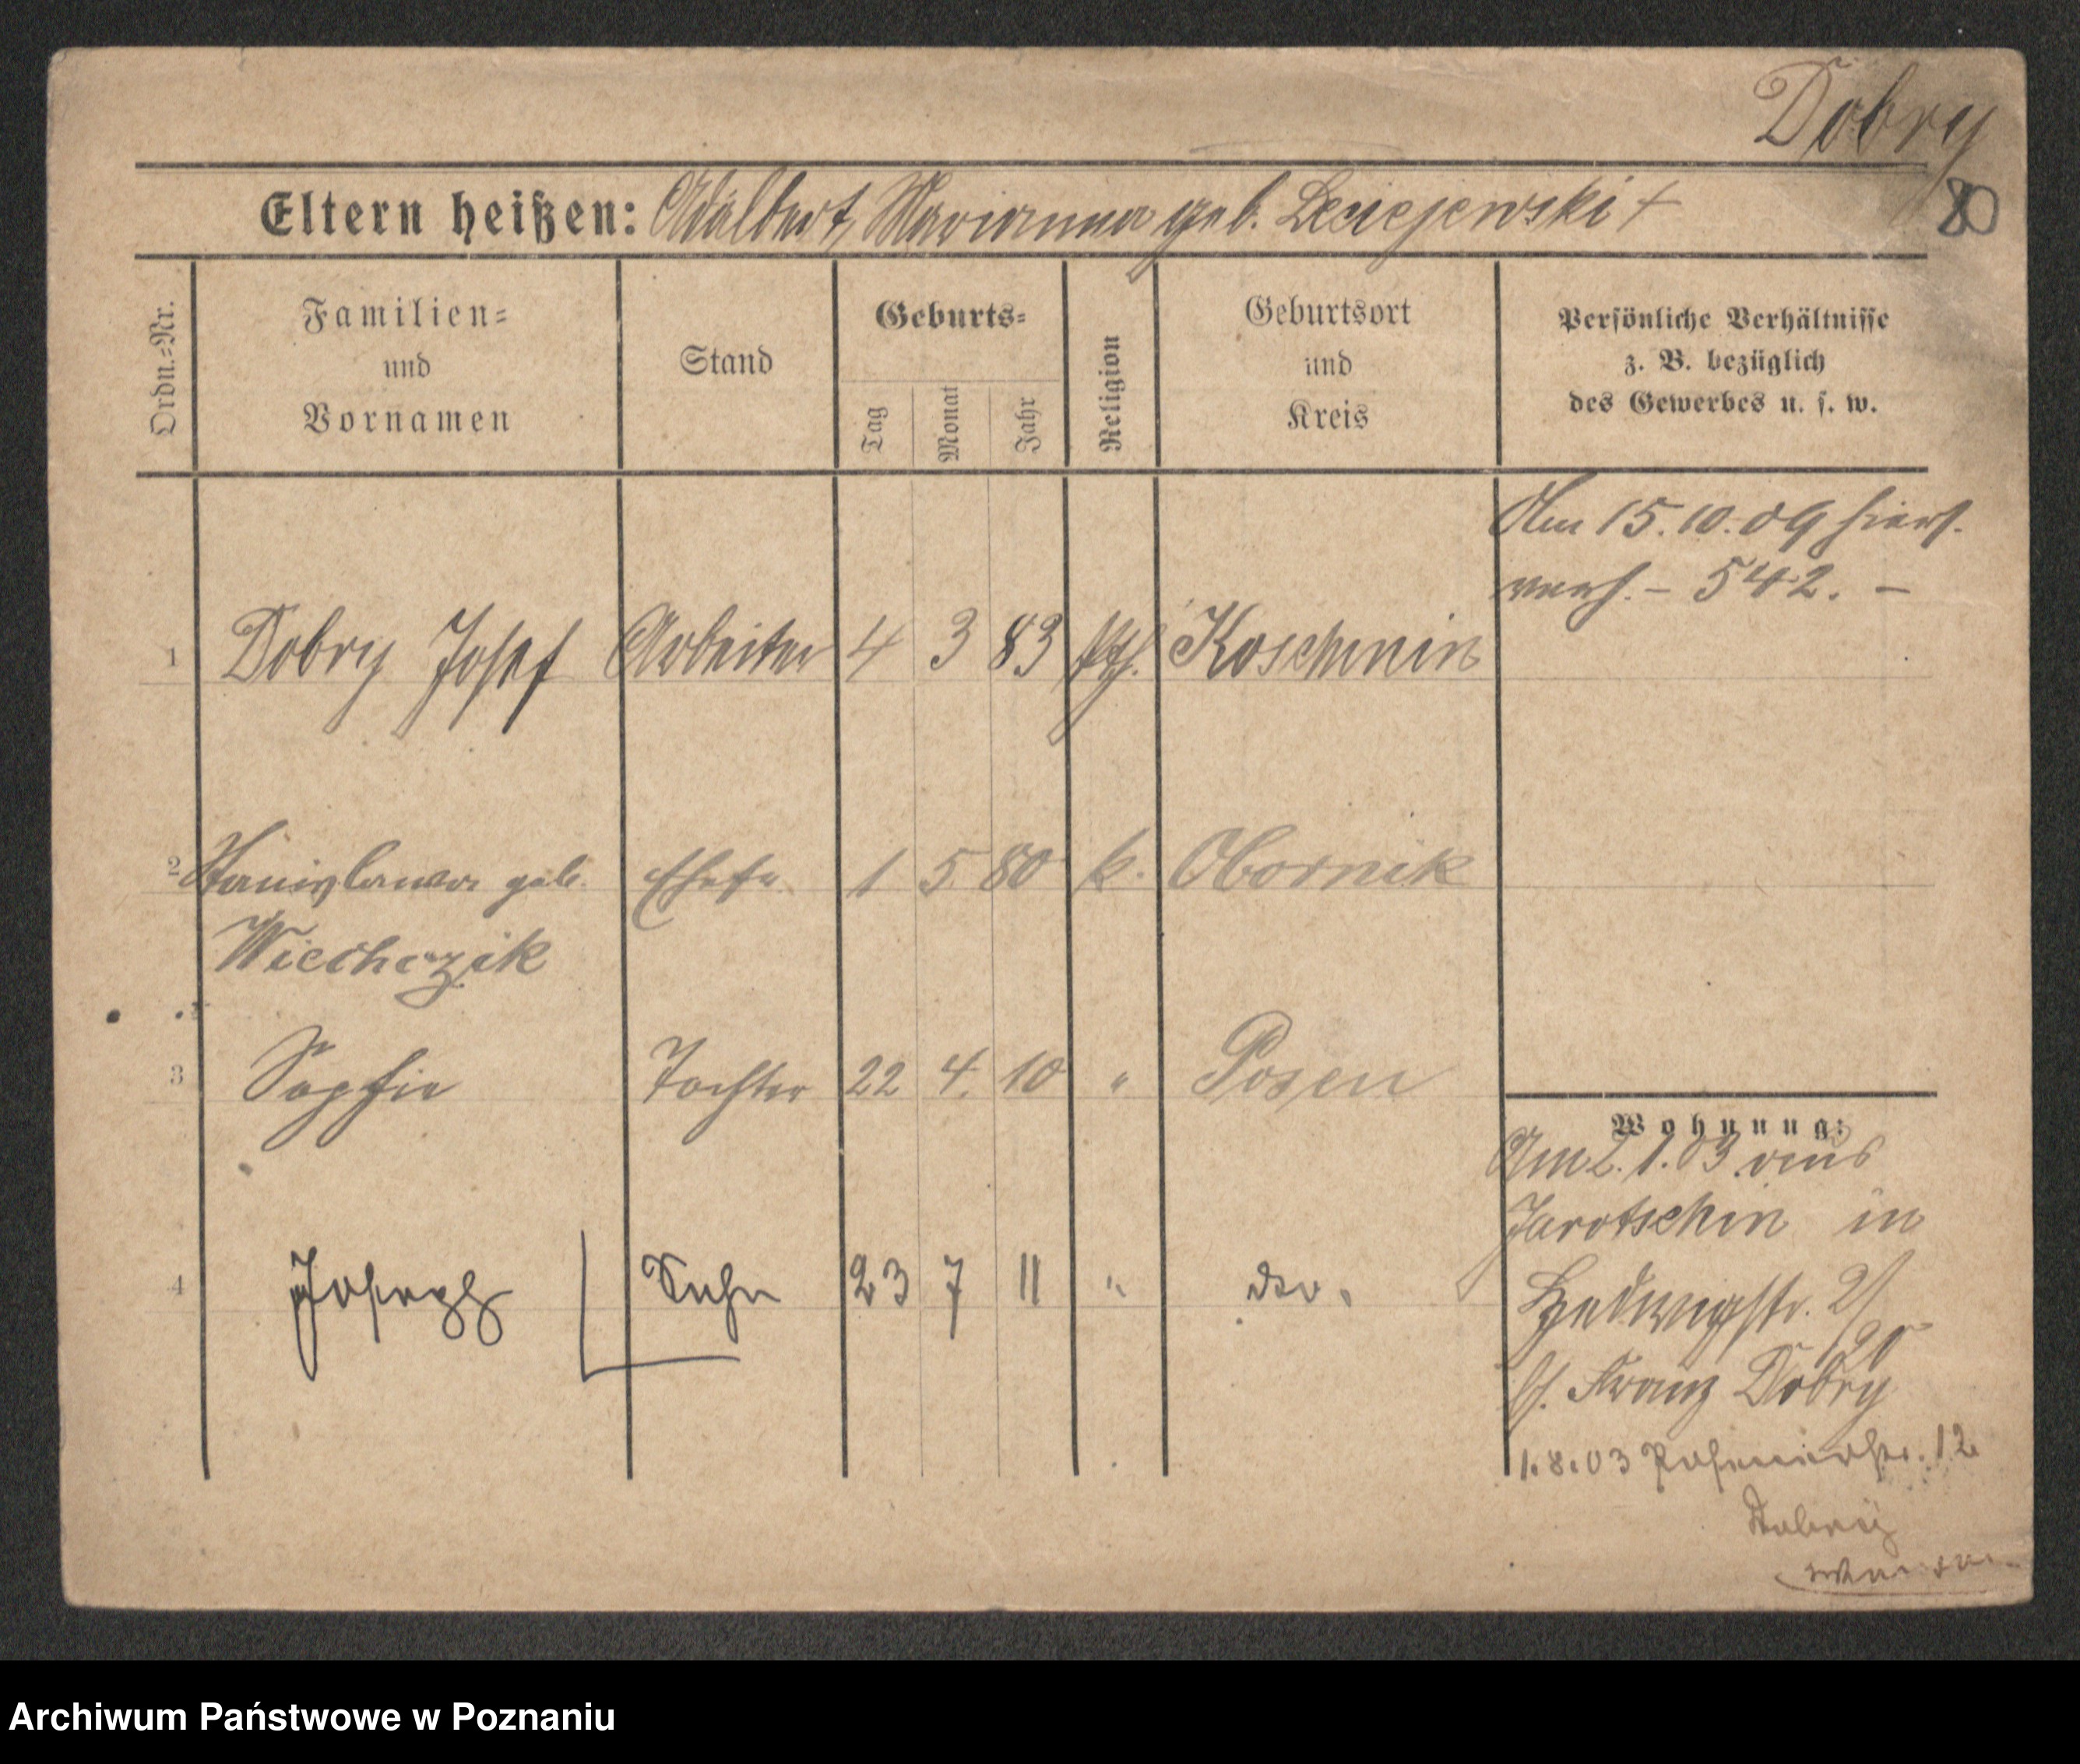 Dobry
80
Eltern heißen: Adalbert, Marianna geb. Leciejewski +
Ordn.-Nr.
Familien-
und
Vornamen
Stand
Geburts-
Tag
Monat
Jahr
Religion
Geburtsort
und
Kreis
Persönliche Verhältnisse
z. B. bezüglich
des Gewerbes u. s. w.
Am 15.10.09 hiers.
verh. – 542. –
1 Dobry Josef Arbeiter 4 3 83 kth. Koschmin
2 Stanislawa geb. Ehefr. 1 5 80 k. Obornik
Wiecherzik
3 Sophie Tochter 22 4. 10 " Posen
4 Joseph Sohn 23 7 11 " dto.
Wohnung:
Am 2.1.03 aus
Jarotschin in
Hedwigstr. 21
20
b/. Franz Dobry
1.8.03 12
Archiwum Państwowe w Poznaniu